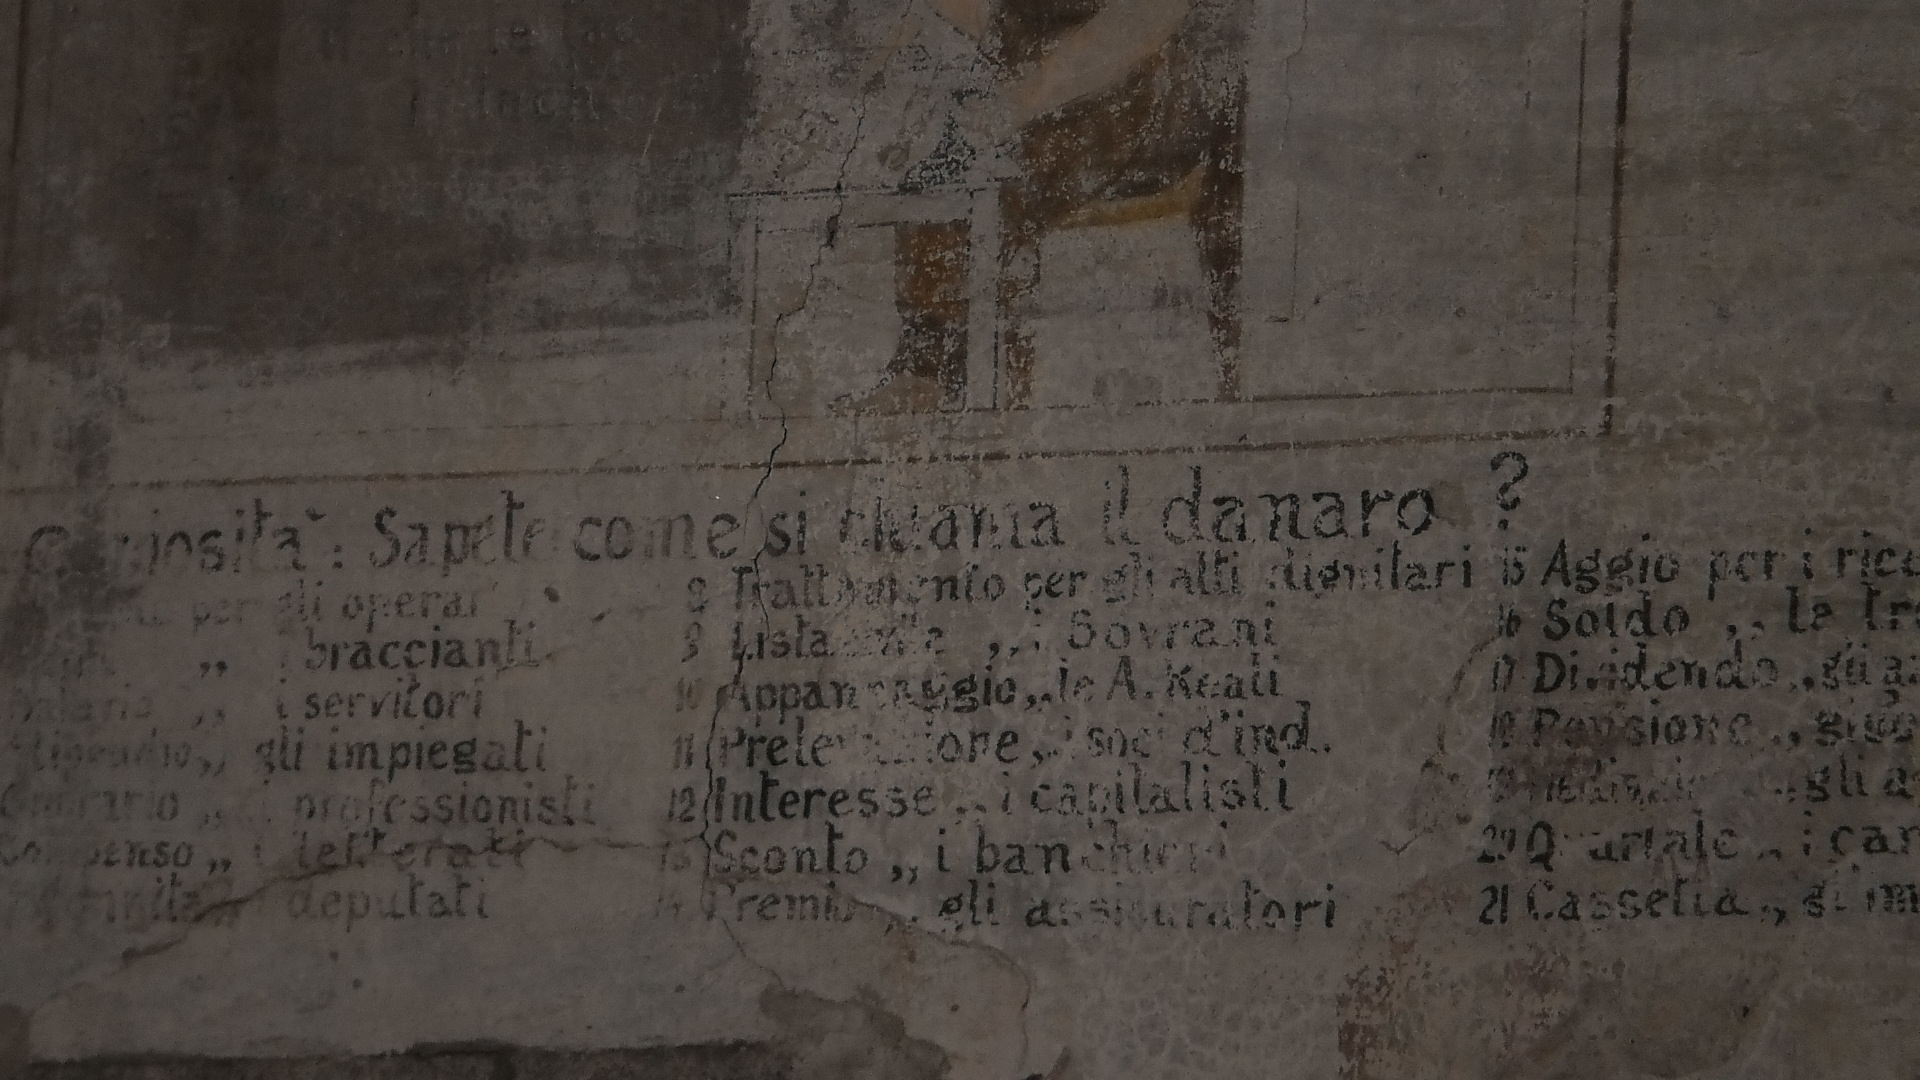 Curiosità: Sapete come si chiama il danaro?
per gli operai
„ i braccianti
Salario „ i servitori
Stipendio „ gli impiegati
Onorario „ i professionisti
Compenso „ i letterati
Indennità „ i deputati
8 Trattamento per gli alti dignitari
9 Lista civile „ i Sovrani
10 Appannaggio „ le A. Reali
11 Prelevazione „ i soci d'ind.
12 Interesse „ i capitalisti
13 Sconto „ i banchieri
14 Premio „ gli assicuratori
15 Aggio per i rice
16 Soldo „ le tr
17 Dividendo „ gli a
18
19 „ gli a
20 Quartale „ i can
21 Cassetta „ gl'im